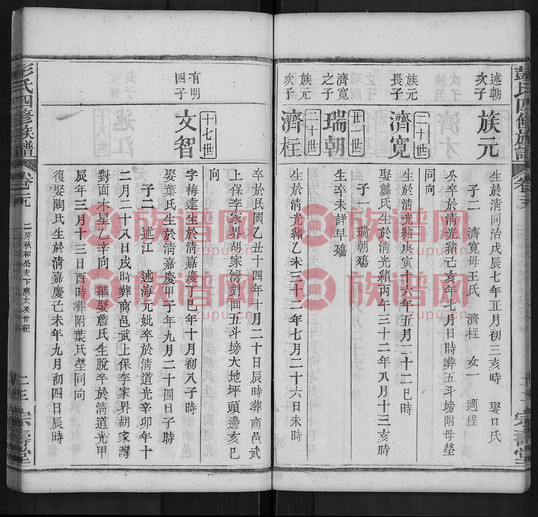 彭氏四修族譜
述朝
次子
族元
生於清同治戊辰七年正月初三亥時 娶口氏
子二 濟寬母王氏 濟柱 女一 適程
歿於清光緒己亥年七月日時葬五斗塝附母塋
同向
族元
長子
二十世
濟寬
生於清光緒庚寅十六年五月二十二巳時
娶龔氏生於清光緒丙申二十二年八月十三亥時
子一 瑞朝殤
濟寬
之子
廿一世
瑞朝
生卒未詳早殤
族元
次子
二十世
濟柱
生於清光緒乙未三十二年七月二十六日未時
卒於民國乙丑十四年十月二十日辰時葬商邑武
上保李家界胡家灣對面五斗塝大地坪頭邊亥巳
同向
有明
四子
十七世
文智
字梅達生於清嘉慶丁巳年十月初八子時
娶葉氏生於清嘉慶甲子年九月二十四日子時
子二 述江 述海元妣卒於清道光辛卯年十
二月二十八日戌時葬商邑武上保李家界胡家灣
對面木星乙辛向 繼娶詹氏生脫卒於清道光甲
辰年三月十三日酉時葬附葉氏塋同向
復娶陶氏生於清嘉慶己未年九月初四日辰時
彭氏四修族譜
卷之五
二十三
宗壽堂
族谱网
zupu.cn